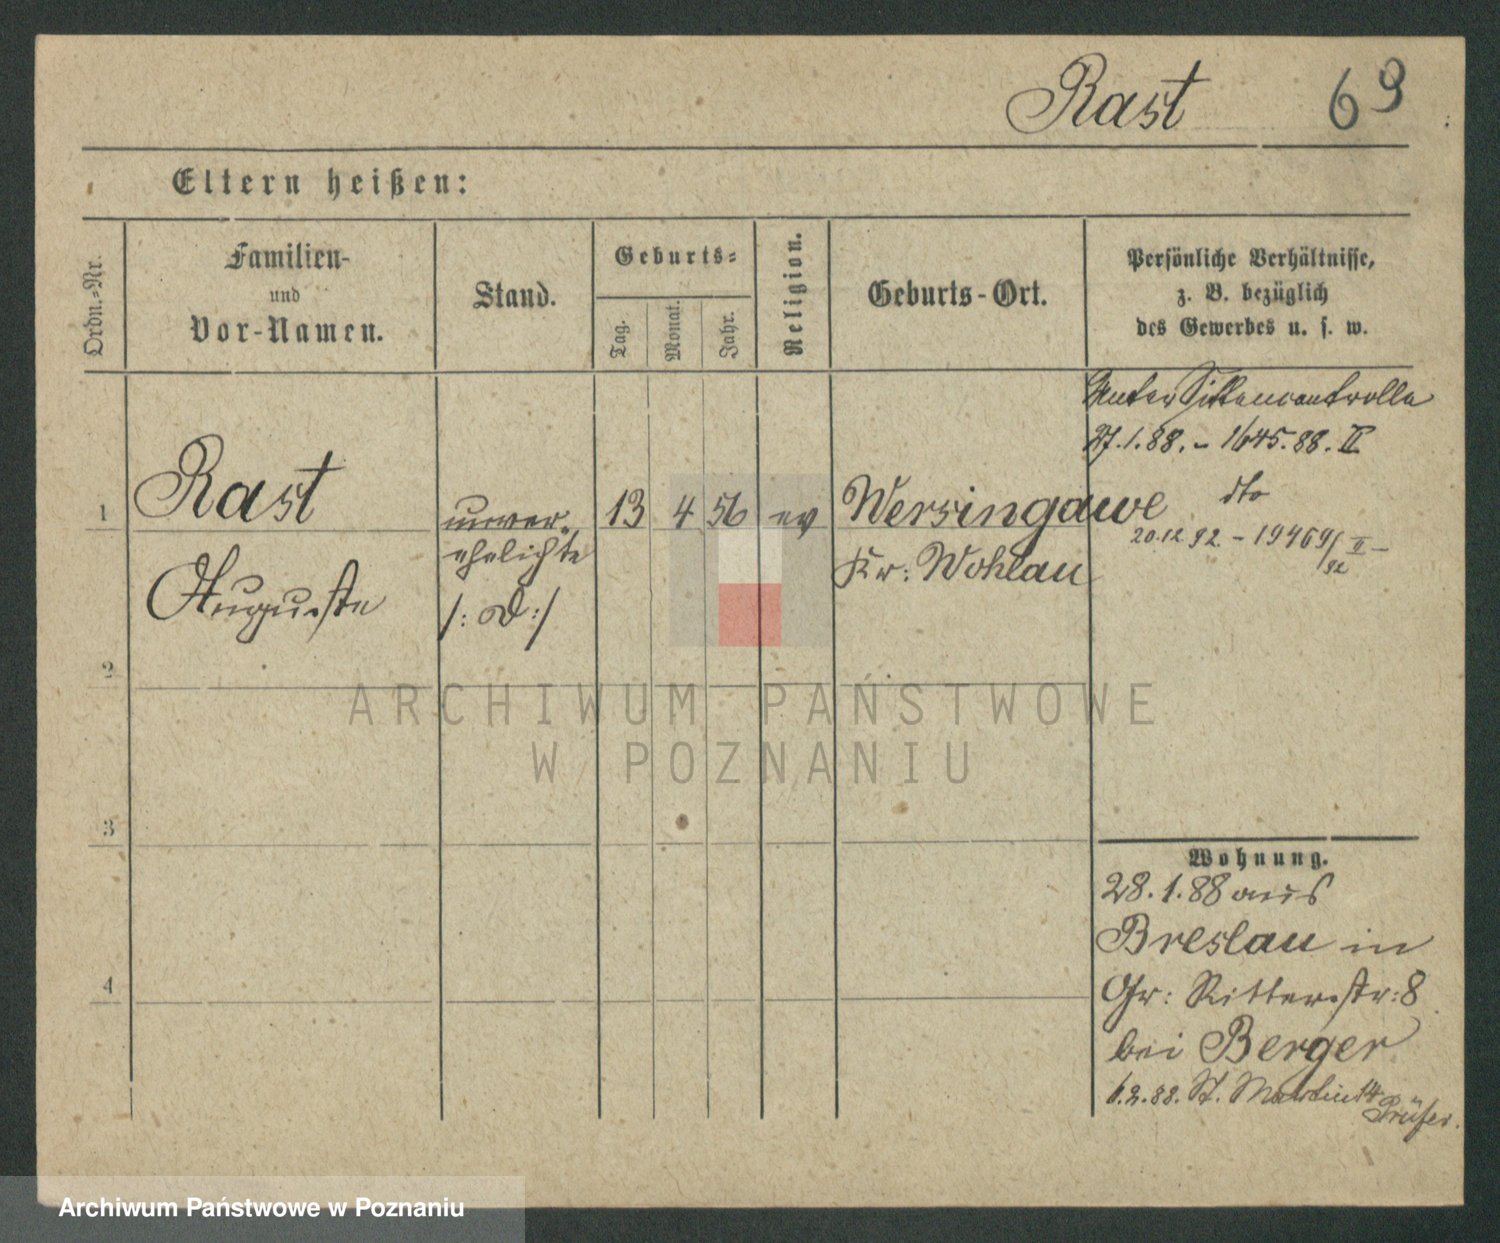 Rast 69
Eltern heißen:
Ordn.-Nr.
Familien-
und
Vor-Namen.
Stand.
Geburts-
Tag.
Monat.
Jahr.
Religion.
Geburts-Ort.
Persönliche Verhältnisse,
z. B. bezüglich
des Gewerbes u. s. w.
Unter Sittencontrolle
27.1.88. - 1645.88. II
dto
20.12 92 - 19469/92 II -
1
Rast
Auguste
unver-
ehelichte
/: D :/
13 4 56 ev
Wersingawe
Kr: Wohlau
2
3
4
Wohnung.
28.1.88 aus
Breslau in
Gr: Ritterstr: 8
bei Berger
6.2.88. St. Martin 14
Prüfer.
ARCHIWUM PAŃSTWOWE
W POZNANIU
Archiwum Państwowe w Poznaniu